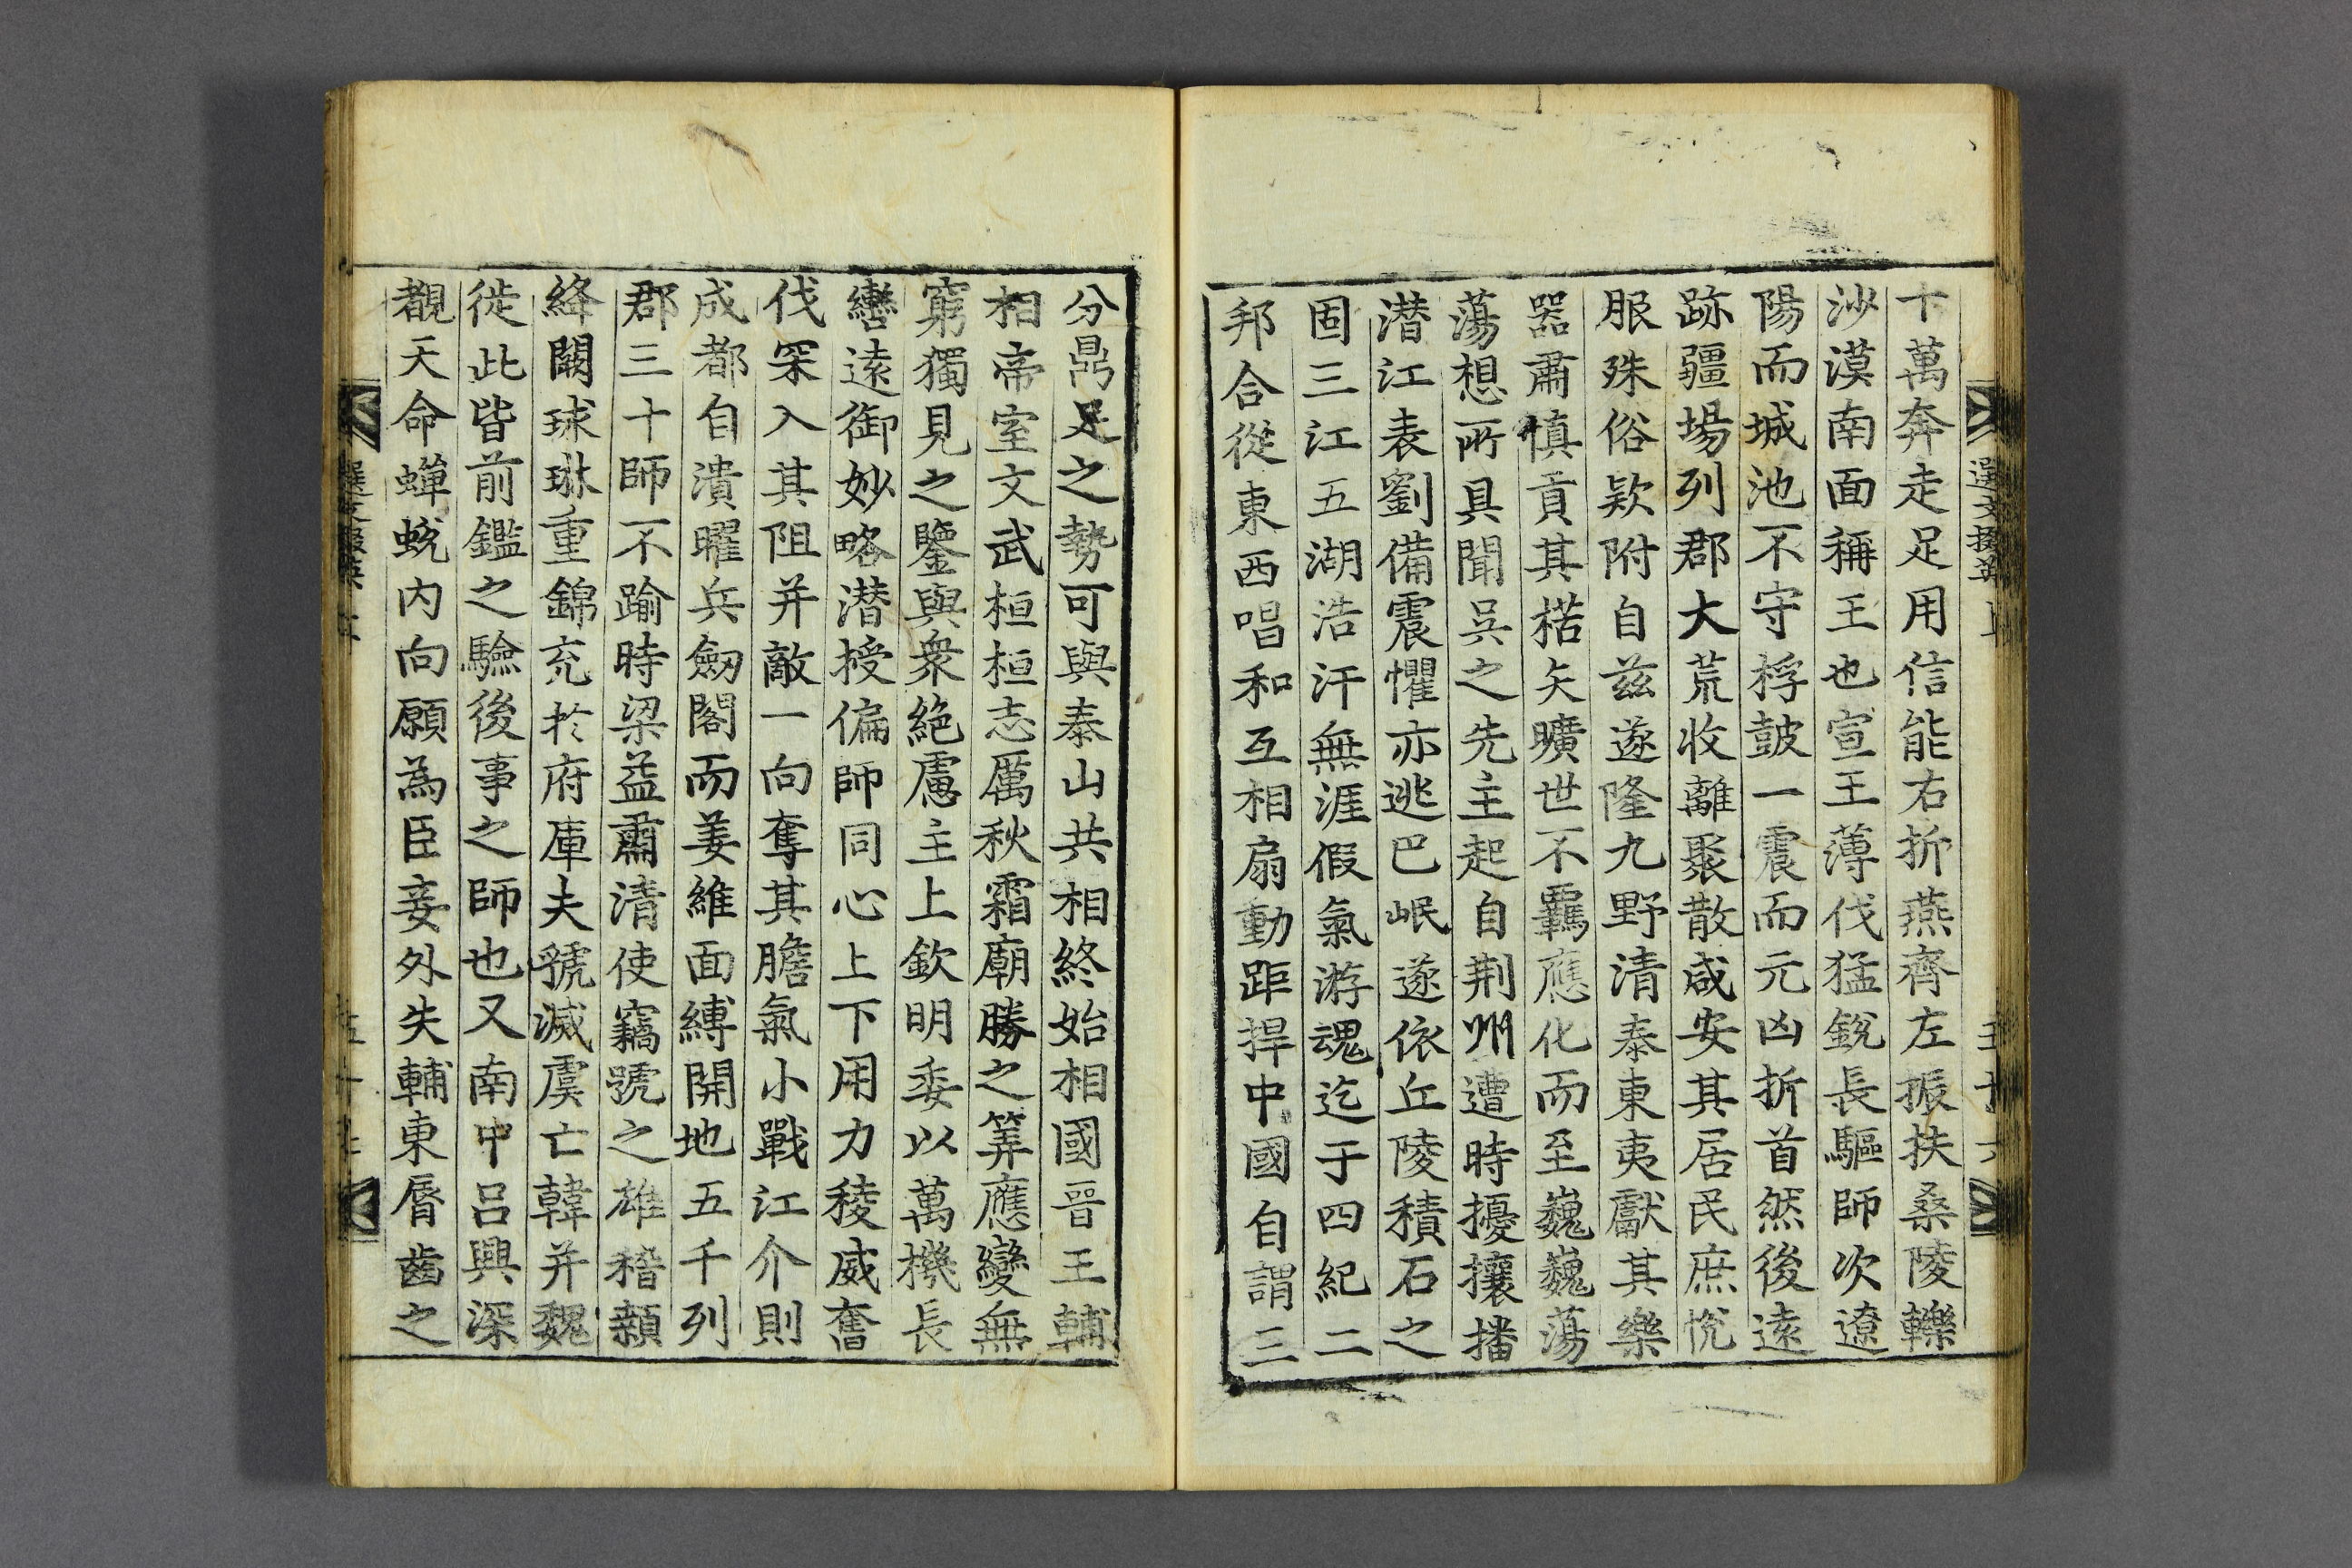 十萬奔走足用信能右折燕齊左振扶桑陵轢
沙漠南面稱王也宣王薄伐猛銳長驅師次遼
陽而城池不守桴鼓一震而元凶折首然後遠
跡疆場列郡大荒收離聚散咸安其居民庶悅
服殊俗欵附自兹遂隆九野清泰東夷獻其樂
器肅慎貢其楛矢曠世不羈應化而至巍巍蕩
蕩想所具聞吳之先主起自荆州遭時擾攘播
潜江表劉備震懼亦逃巴岷遂依丘陵積石之
固三江五湖浩汗無涯假氣游魂迄于四紀二
邦合從東西唱和互相扇動距捍中國自謂三
選文掇英
五十六
分鼎足之勢可與泰山共相終始相國晉王輔
相帝室文武桓桓志厲秋霜廟勝之筭應變無
窮獨見之鑒與衆絶慮主上欽明委以萬機長
轡遠御妙略潜授偏師同心上下用力稜威奮
伐罙入其阻并敵一向奪其膽氣小戰江介則
成都自潰曜兵劒閣而姜維面縛開地五千列
郡三十師不踰時梁益肅清使竊號之雄稽顙
絳闕球琳重錦充於府庫夫虢滅虞亡韓并魏
徙此皆前鑑之驗後事之師也又南中呂興深
覩天命蟬蛻内向願為臣妾外失輔東脣齒之